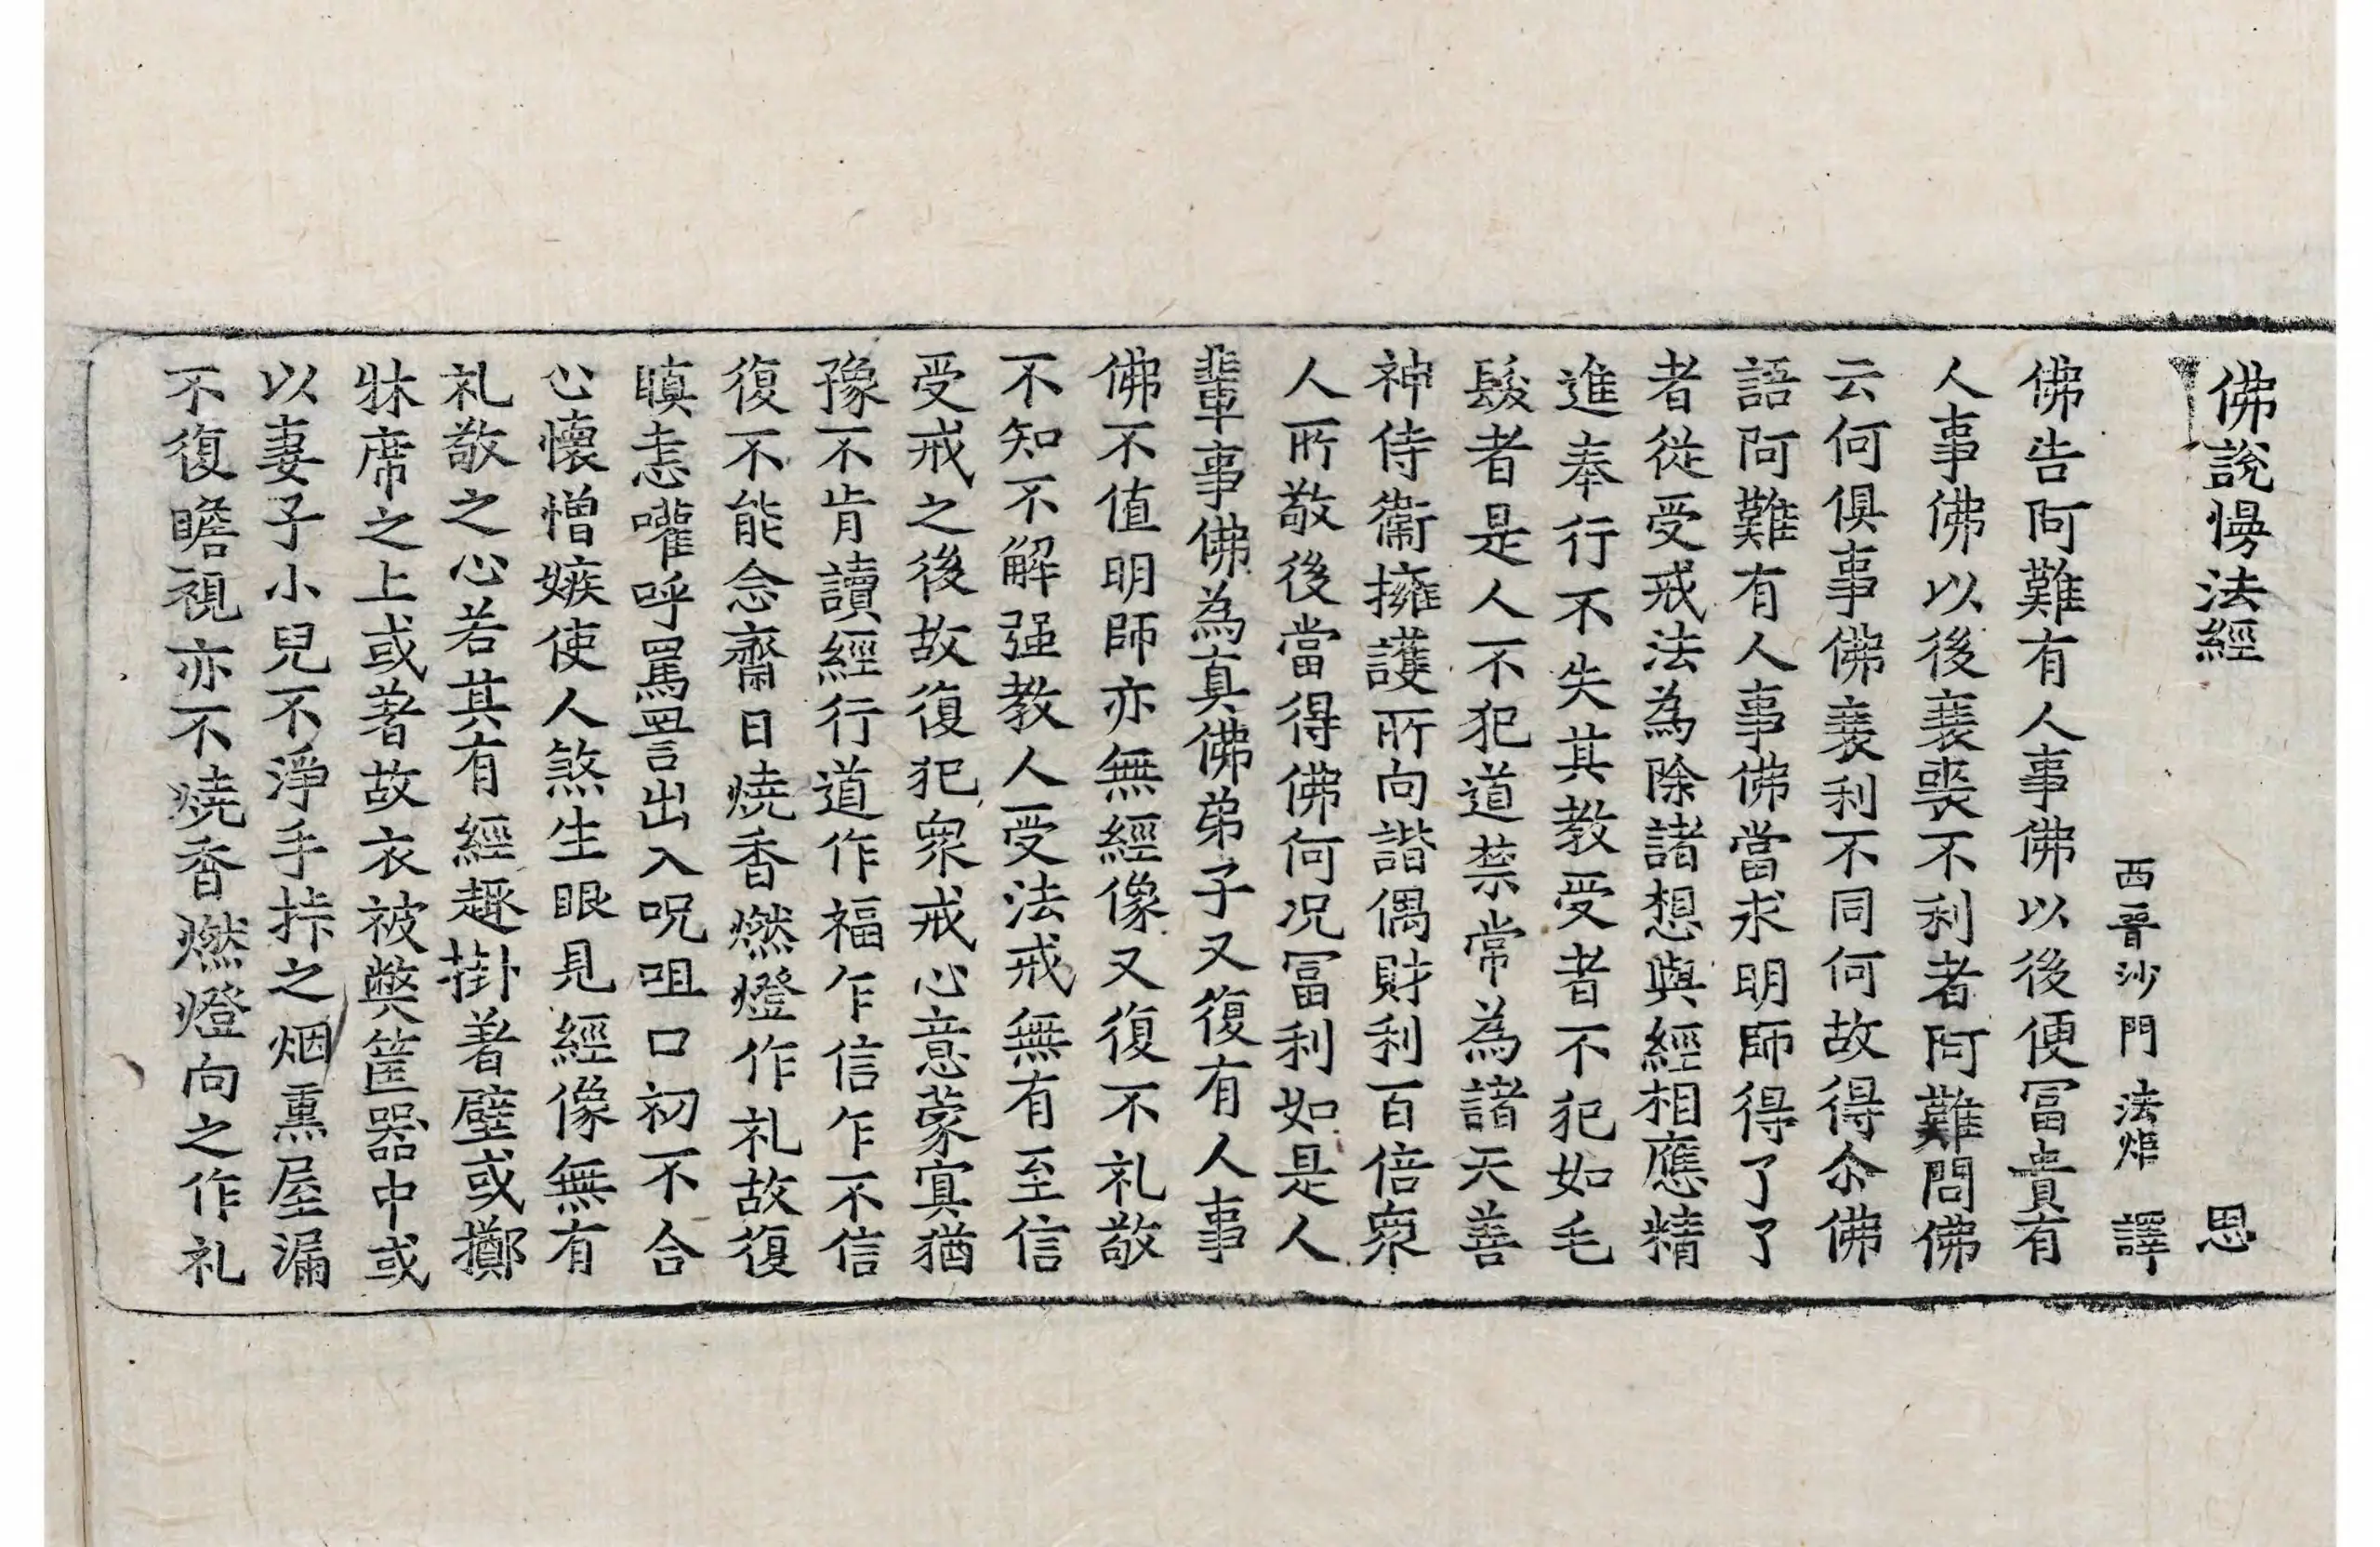 佛說慢法經 思
西晉沙門法炬譯
佛告阿難有人事佛以後便冨貴有
人事佛以後衰喪不利者阿難問佛
云何俱事佛衰利不同何故得尒佛
語阿難有人事佛當求明師得了了
者從受戒法為除諸想與經相應精
進奉行不失其教受者不犯如毛
髮者是人不犯道禁常為諸天善
神侍衞擁護所向諧偶財利百倍衆
人所敬後當得佛何况冨利如是人
輩事佛為真佛弟子又復有人事
佛不值明師亦無經像又復不礼敬
不知不解强教人受法戒無有至信
受戒之後故復犯衆戒心意蒙冥猶
豫不肯讀經行道作福乍信乍不信
復不能念齋日燒香燃燈作礼故復
瞋恚嚾呼罵詈出入呪咀口初不合
心懷憎嫉使人煞生眼見經像無有
礼敬之心若其有經趣掛著壁或擲
牀席之上或著故衣被弊筐器中或
以妻子小兒不淨手㧊之烟熏屋漏
不復瞻視亦不燒香燃燈向之作礼